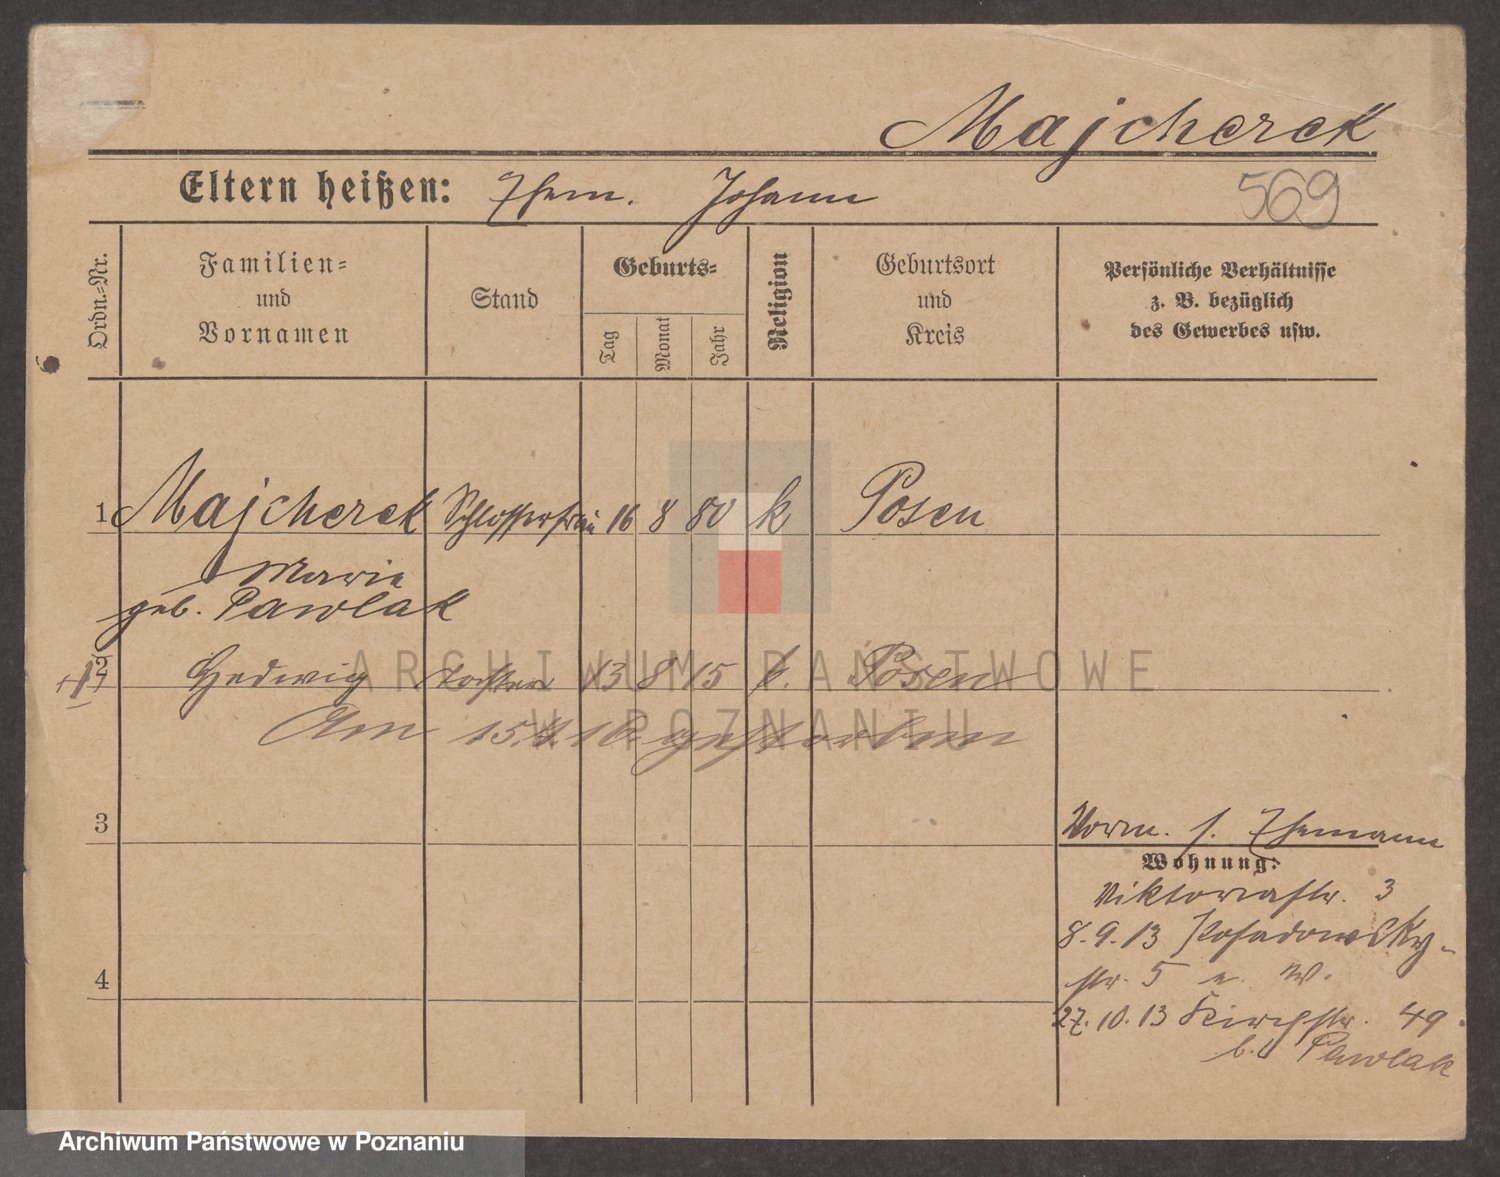 Majcherek
Eltern heißen: Ehem. Johann
569
Ordn.-Nr.
Familien-
und
Vornamen
Stand
Geburts-
Tag
Monat
Jahr
Religion
Geburtsort
und
Kreis
Persönliche Verhältnisse
z. B. bezüglich
des Gewerbes usw.
1 Majcherek Schlosserfrau 16 8 80 k Posen
Marie
geb. Pawlak
2 Hedwig Tochter 13 8 15 k. Posen
Am 15. 16 gestorben
3
Vorm. s. Ehemann
Wohnung:
Viktoriastr. 3
8.9.13 Posadowsky-
str. 5 u. W.
4
27.10.13 Kirchstr. 49
b. Pawlak
ARCHIWUM PAŃSTWOWE
W POZNANIU
Archiwum Państwowe w Poznaniu